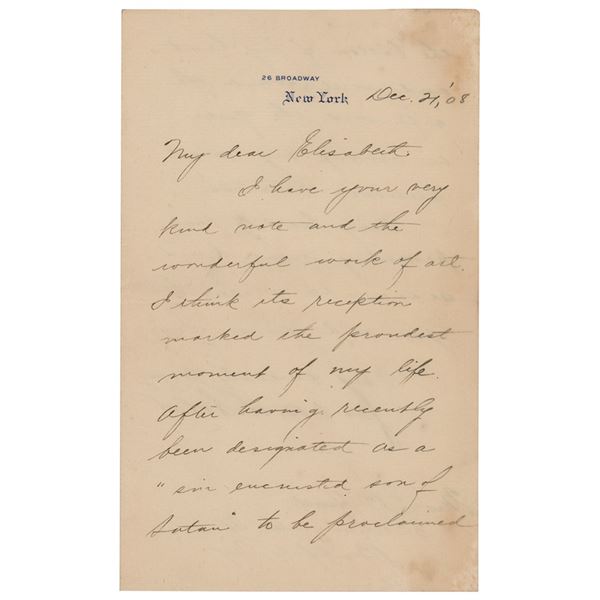 26 BROADWAY
New York Dec. 21, '08
My dear Elisabeth,
I have your very
kind note and the
wonderful work of art.
I think its reception
marked the proudest
moment of my life.
After having recently
been designated as a
"sin encrusted son of
Satan" to be proclaimed